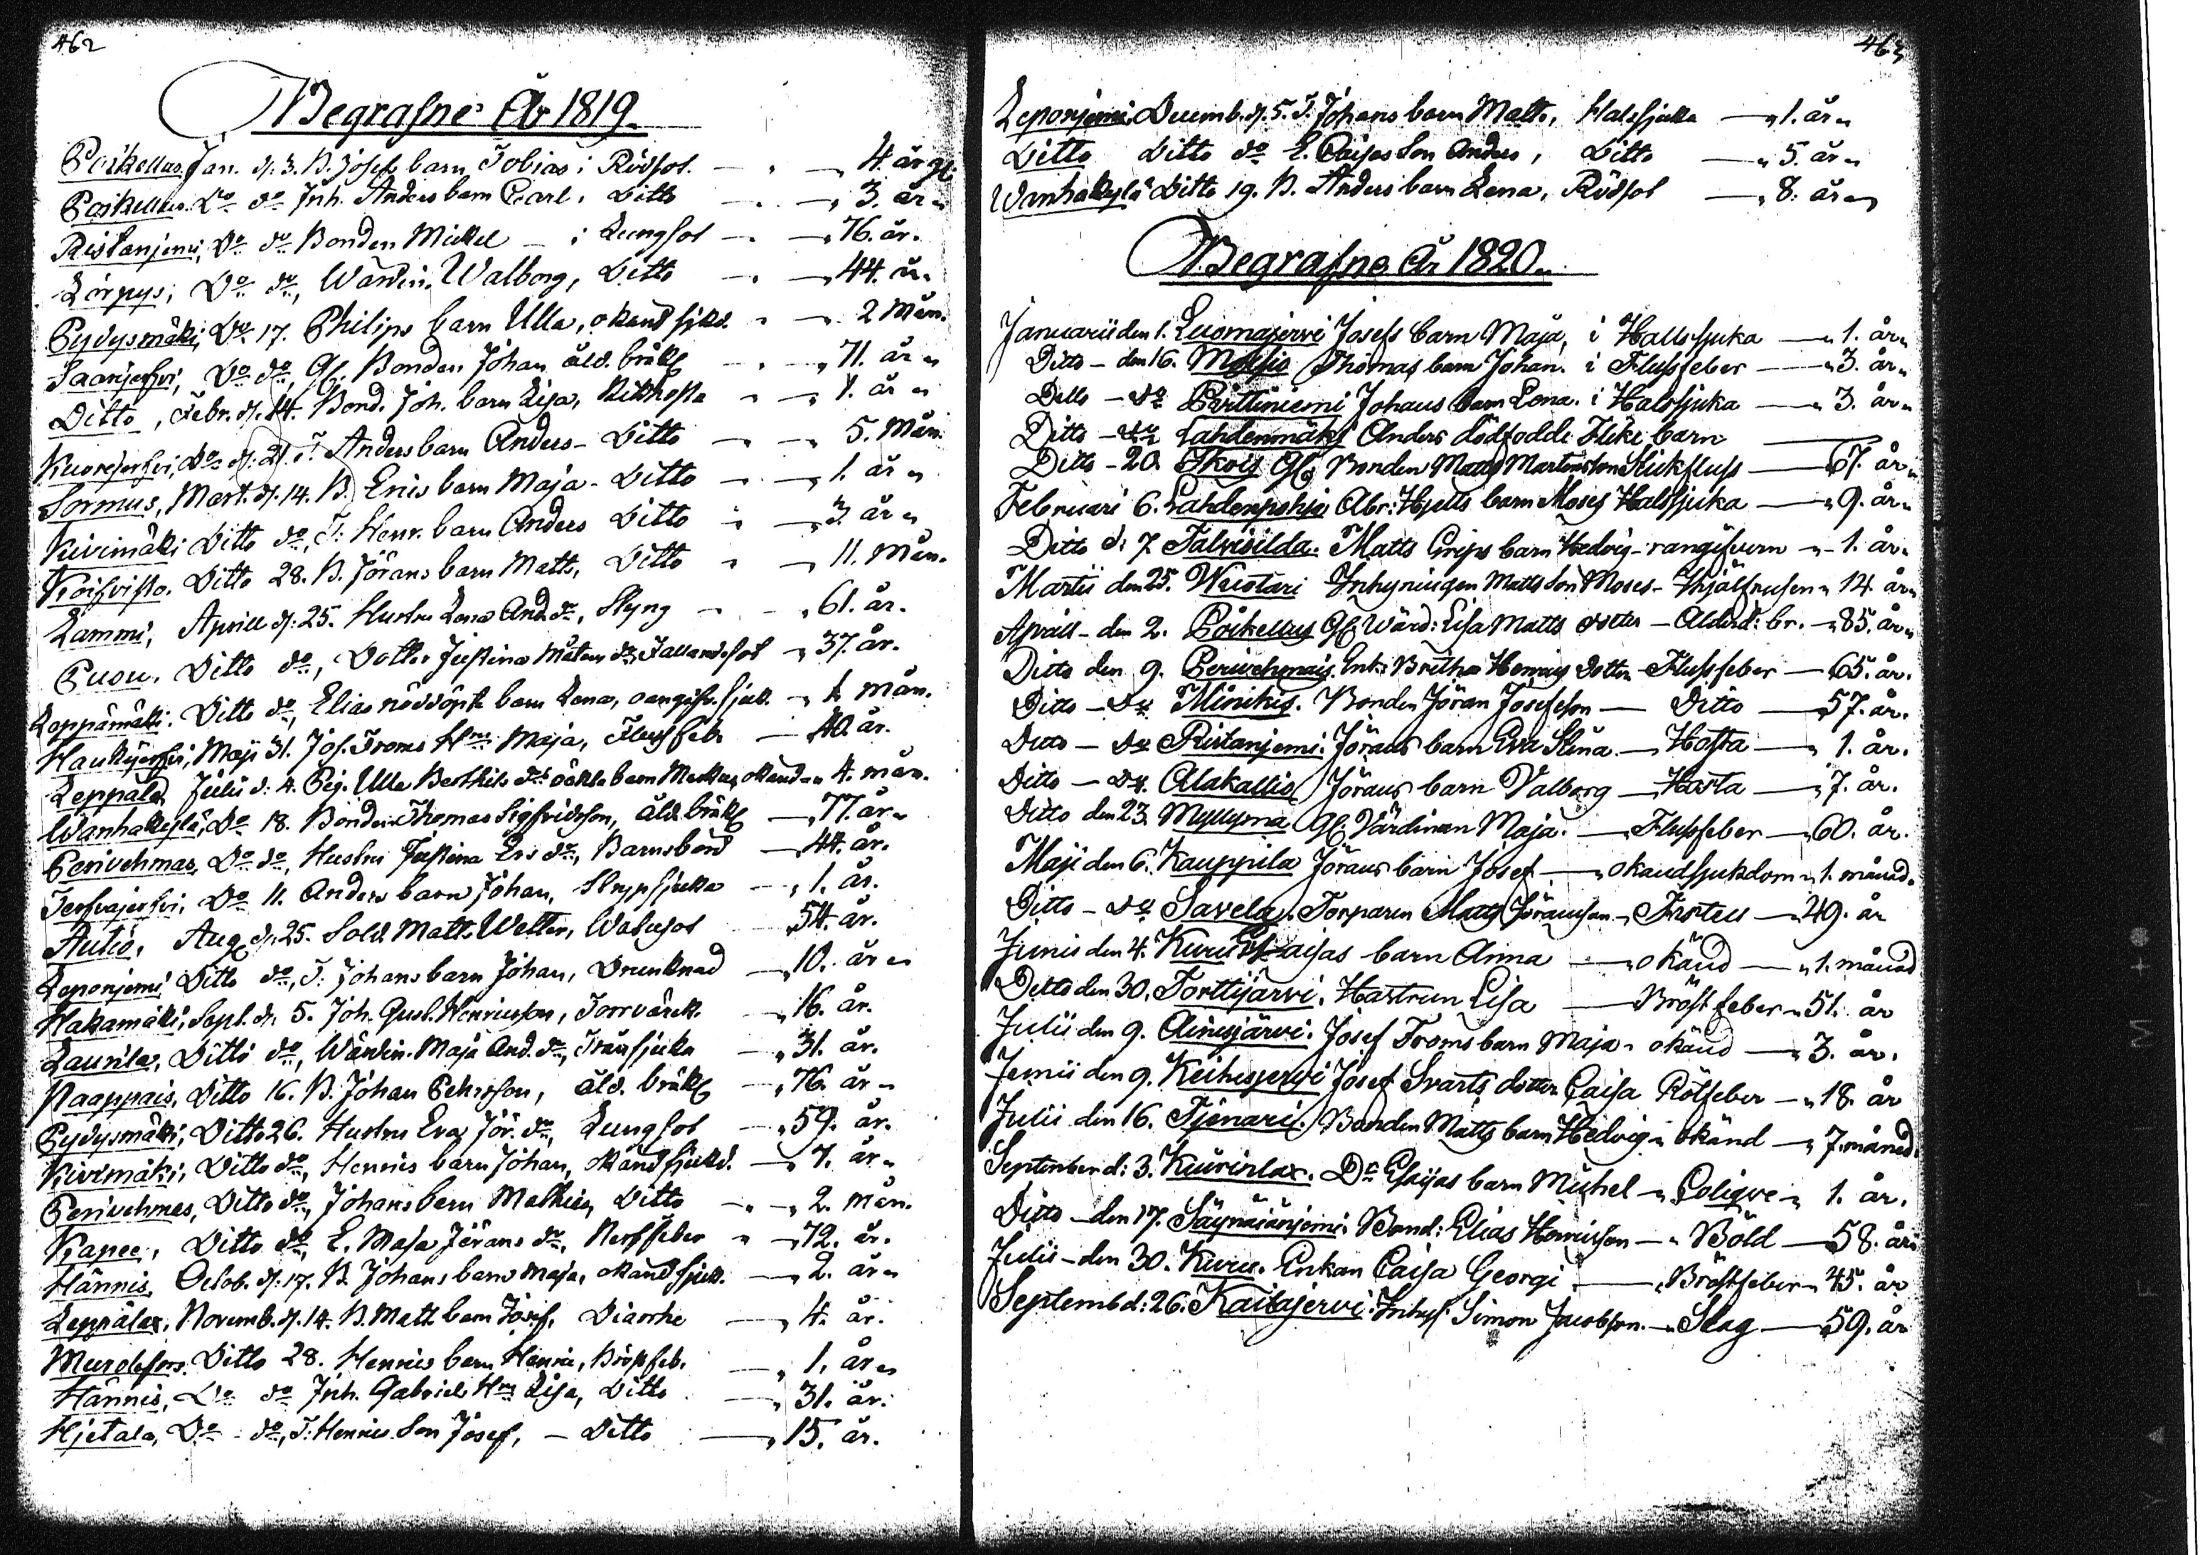 462
Begrafne År 1819.
Poikellus Jan. d. 3. B. Josefs barn Tobias i Rödsot. 4. år gl.
Poikellus. Do do Inh. Anders barn Carl, Ditto 3. år
Ristanjemi, Do do Bonden Mickel i Lungsot 76. år.
Lörpys, Do do, Wärdin. Walborg, Ditto 44. år.
Pydysmäki, Do 17. Philips barn Ulla, okänd sjukd. 2 Mån.
Saarijerfvi, Do do, Gl. Bonden Johan åld. bräkl 71. år
Ditto, Febr. d. 14. Bond. Joh. barn Lisa, Kikhosta 1. år
Kuorejerfvi, Do d. 21. T. Anders barn Anders Ditto 5. Mån.
Sormus, Mart. d. 14. B. Erics barn Maja Ditto 1. år
Kivimäki Ditto do, T. Henr. barn Anders Ditto 3 år
Koifvisto. Ditto 28. B. Jörans barn Matts, Ditto 11. Mån.
Lammi, Aprill d. 25. Hustru Lena And. dr, Styng 61. år.
Puou. Ditto do, Dotter Justina Mats dr, Fallandesot 37. år.
Loppämäki. Ditto do, Elias nöddöpt barn Lena, oangifv. sjuk. 1 mån.
Haukijerfvi, Maji 31. Jos. Froms Hru Maja, Fluss feb. 40. år.
Leppälä Julii d. 4. Pig. Ulla Bertkils drs oäkta barn Markus, okänd 4. mån.
Wanhakylä, Do 18. Bonden Thomas Sigfridsson, åld. bräkl 77. år
Perivehmas, Do do, Hustru Justina Ers dr, Barnsbörd 44. år.
Terfvajerfvi, Do 11. Anders barn Johan, Strypsjuka 1. år.
Autio, Aug d. 25. Sold. Matts Welter, Watusot 54. år.
Leponjemi Ditto do, T. Johans barn Johan, Drunknad 10. år
Hakamäki, Sept. d. 5. Joh. Gust. Henricsson, Torrvärk. 16. år.
Laurila, Ditto do, Wärdin. Maja And. dr, Trånsjuka 31. år.
Naappais, Ditto 16. B. Johan Pehrsson, åld. bräkl 76. år
Pydysmäki, Ditto 26. Hustru Eva Jör. dr, Lungsot 59. år.
Kivimäki, Ditto do, Henrics barn Johan, okänd sjukd. 7. år
Perivehmas, Ditto do, Johans barn Mathias Ditto 2. mån.
Kapee, Ditto do E. Maja Jörans dr, Nerffeber 72. år.
Hännis, Octob. d. 17. B. Johans barn Maja, okänd sjukd. 2. år
Leppälax, Novemb. d. 14. B. Matt barn Josef, Diarrhe 4. år.
Murdefors. Ditto 28. Henrics barn Henric, Bröstfeb. 1. år
Hännis, Do do Inh. Gabriels Hru Lisa, Ditto 31. år.
Hjetala, Do do, T. Henrics Son Josef, Ditto 15. år.
463
Leponjemi Decemb. d. 5. T. Johans barn Matts, Halssjuka 1. år
Ditto Ditto do E. Caisas Son Anders, Ditto 5. år
Wanhakylä Ditto 19. B. Anders barn Lena, Rödsot 8. år
Begrafne År 1820.
Januarii den 1. Luomajervi Josefs barn Maja, i Halssjuka 1. år
Ditto den 16. Thomas barn Johan. i Flussfeber 3. år
Ditto do Perttiniemi Johans barn Lena. i Halssjuka 3. år
Ditto do Lahdenmäki Anders dödfödde barn
Ditto 20. Skois Gl. Bonden Matts Martensson Stickfluss 67. år
Februari 6. Lahdenpohja Abr: barn Moses Halssjuka 9. år
Ditto d. 7 Talvisilda. Matts Grips barn Hedvig 1. år
Martii den 25. Weistari Inhysningen Matts Son Moses 14. år
Aprill den 2. Poikellus Gl. Wärd: Lisa Matts dotter Ålderd: br. 85. år
Ditto den 9. Perivehmais. Enk: Britha Henrics dotter Flussfeber 65. år.
Ditto do Minikis. Bonden Jöran Josefsson Ditto 57. år.
Ditto do Ristanjemi. Jörans barn Eva Stina Hosta 1. år.
Ditto do Alakallio Jörans barn Valborg Hosta 7. år.
Ditto den 23. Myllymä Gl. Värdinnan Maja. Flussfeber 60. år.
Maji den 6. Kauppila Jörans barn Josef okändsjukdom 1. månad.
Ditto do Savela. Torparen Matts Jöransson 49. år
Junii den 4. Kuru Esaijas barn Anna okänd 1. månad
Ditto den 30. Torttijärvi. Hustrun Lisa Bröstfeber 51. år
Julii den 9. Ainesjärvi. Josef Froms barn Maja okänd 3. år.
Junii den 9. Keihesjervi Josef Svarts dotter Caisa Rötfeber 18. år
Julii den 16. Tjenari. Bonden Matts barn Hedvig okänd 7. månad
September d: 3. Kurirlax. Do Esaijas barn Michel Colique 1. år.
Ditto den 17. Säynäjänjemi. Bond: Elias Henricsson Böld 58. år
Julii den 30. Kuru. Enkan Caisa Georgi Bröstfeber 45. år
Septemb d: 26. Kaitajervi. Inhys: Simon Jacobsson. Slag 59. år